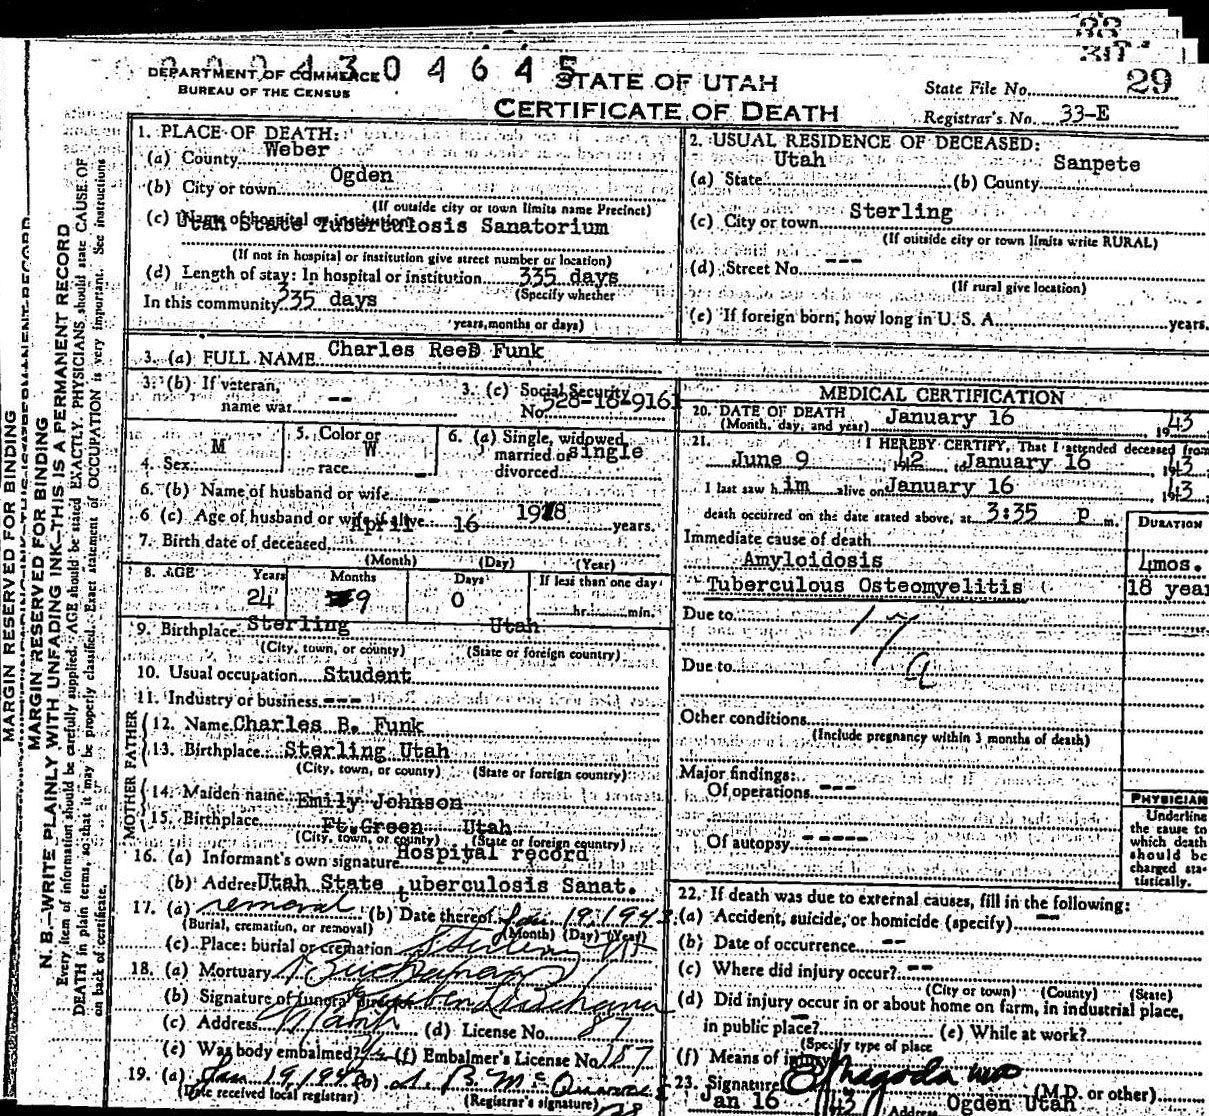 33
30
0 4 3 0 4 6 4 5
DEPARTMENT OF COMMERCE
BUREAU OF THE CENSUS
STATE OF UTAH
CERTIFICATE OF DEATH
State File No. 29
Registrar's No. 33-E
1. PLACE OF DEATH:
(a) County Weber
(b) City or town Ogden
(If outside city or town limits name Precinct)
(c) Name of hospital or institution
Utah State Tuberculosis Sanatorium
(If not in hospital or institution give street number or location)
(d) Length of stay: In hospital or institution 335 days
(Specify whether
In this community 335 days
years, months or days)
2. USUAL RESIDENCE OF DECEASED:
(a) State Utah (b) County Sanpete
(c) City or town Sterling
(If outside city or town limits write RURAL)
(d) Street No. ---
(If rural give location)
(e) If foreign born, how long in U. S. A. years.
3. (a) FULL NAME Charles ReeD Funk
3. (b) If veteran, name war --
3. (c) Social Security No. 528-18-9161
4. Sex M
5. Color or race W
6. (a) Single, widowed, married or divorced single
6. (b) Name of husband or wife -
6 (c) Age of husband or wife if alive years.
7. Birth date of deceased April 16 1918
(Month) (Day) (Year)
8. AGE Years 24 Months 9 Days 0 If less than one day hr. min.
9. Birthplace Sterling Utah
(City, town, or county) (State or foreign country)
10. Usual occupation Student
11. Industry or business ---
FATHER
12. Name Charles B. Funk
13. Birthplace Sterling Utah
(City, town, or county) (State or foreign country)
MOTHER
14. Maiden name Emily Johnson
15. Birthplace Ft.Green Utah
(City, town, or county) (State or foreign country)
16. (a) Informant's own signature Hospital record
(b) Address Utah State tuberculosis Sanat.
17. (a) removal (b) Date thereof Jan 19, 1943
(Burial, cremation, or removal) (Month) (Day) (Year)
(c) Place: burial or cremation Sterling Ut
18. (a) Mortuary Buchanan
(b) Signature of funeral director
(c) Address Manti (d) License No. 87
(e) Was body embalmed? (f) Embalmer's License No. 187
19. (a) Jan 19, 1943 (b)
(Date received local registrar) (Registrar's signature)
MEDICAL CERTIFICATION
20. DATE OF DEATH January 16 1943
(Month, day, and year)
21. I HEREBY CERTIFY, That I attended deceased from
June 9 1942 to January 16 1943
I last saw him alive on January 16 1943
death occurred on the date stated above, at 3:35 p m.
DURATION
Immediate cause of death
Amyloidosis 4mos.
Tuberculous Osteomyelitis 18 year
Due to 17
Due to a
Other conditions
(Include pregnancy within 3 months of death)
Major findings:
Of operations ---
Of autopsy -----
PHYSICIAN
Underline
the cause to
which death
should be
charged sta-
tistically.
22. If death was due to external causes, fill in the following:
(a) Accident, suicide, or homicide (specify) --
(b) Date of occurrence --
(c) Where did injury occur? --
(City or town) (County) (State)
(d) Did injury occur in or about home on farm, in industrial place,
in public place? - (e) While at work?
(Specify type of place
(f) Means of injury
23. Signature (M.D. or other)
Jan 16 43 Address Ogden Utah
MARGIN RESERVED FOR BINDING
MARGIN RESERVED FOR BINDING
N. B.—WRITE PLAINLY WITH UNFADING INK—THIS IS A PERMANENT RECORD
Every item of information should be carefully supplied. AGE should be stated EXACTLY. PHYSICIANS should state CAUSE OF
DEATH in plain terms, so that it may be properly classified. Exact statement of OCCUPATION is very important. See instructions
on back of certificate.